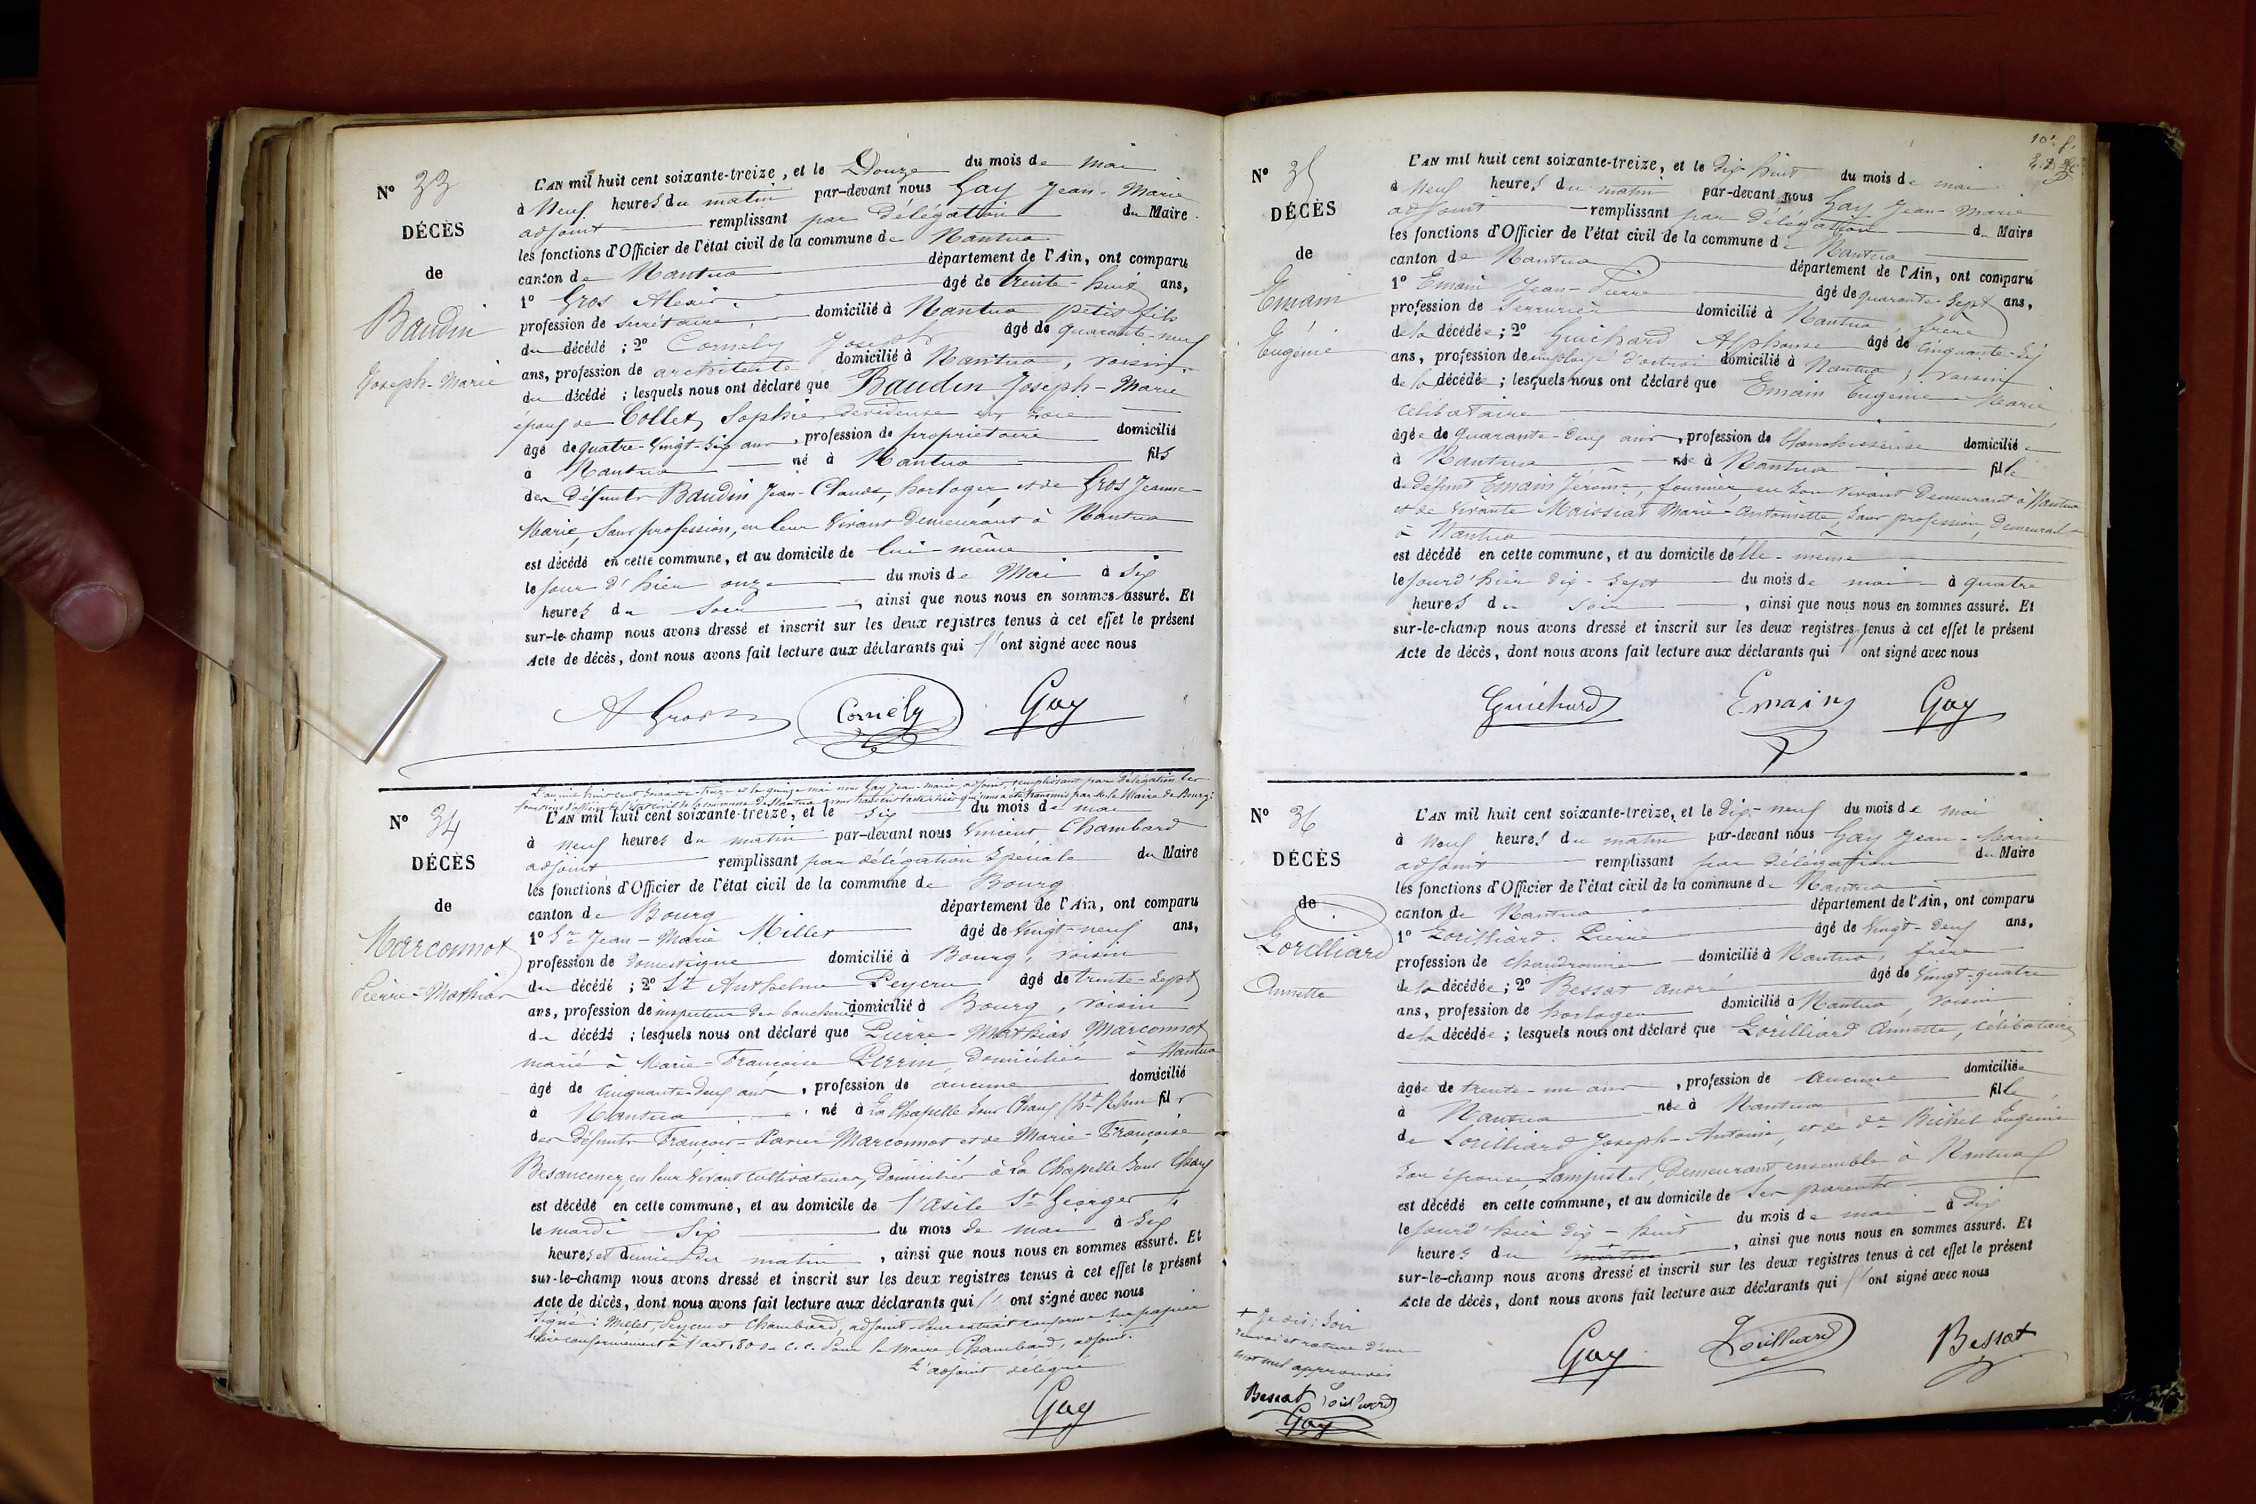 N° 33
DÉCÈS
de
Baudin
Joseph-Marie
L'AN mil huit cent soixante-treize, et le Douze du mois de mai
à Neuf heures du matin par-devant nous Gay Jean-Marie
adjoint remplissant par délégation du Maire
les fonctions d'Officier de l'état civil de la commune de Nantua
canton de Nantua département de l'Ain, ont comparu
1° Gros Alexis âgé de trente-huit ans,
profession de secrétaire, domicilié à Nantua petit fils
du décédé ; 2° Cornély Joseph âgé de quarante-neuf
ans, profession de architecte domicilié à Nantua, voisin
du décédé ; lesquels nous ont déclaré que Baudin Joseph-Marie
époux de Collet, Sophie, dévideuse en soie
âgé de quatre-vingt-six ans, profession de propriétaire domicilié
à Nantua né à Nantua fils
des défunts Baudin Jean-Claude, horloger, et de Gros Jeanne-
Marie, sans profession, en leur vivant demeurant à Nantua
est décédé en cette commune, et au domicile de lui-même
le jour d'hier onze du mois de Mai à six
heures du soir, ainsi que nous nous en sommes assuré. Et
sur-le-champ nous avons dressé et inscrit sur les deux registres tenus à cet effet le présent
Acte de décès, dont nous avons fait lecture aux déclarants qui l'ont signé avec nous
A Gros Cornély Gay
L'an mil huit cent soixante-treize et le quinze mai nous Gay Jean-Marie, adjoint, remplissant par délégation les
fonctions d'officier de l'état civil de la commune de Nantua avons transcrit l'acte décès qui nous a été transmis par M. le Maire de Bourg :
N° 34
DÉCÈS
de
Marconnot
Pierre-Mathias
L'AN mil huit cent soixante-treize, et le six du mois de mai
à neuf heures du matin par-devant nous Vincent Chambard
adjoint remplissant par délégation spéciale du Maire
les fonctions d'Officier de l'état civil de la commune de Bourg
canton de Bourg département de l'Ain, ont comparu
1° Sr Jean-Marie Millet âgé de vingt-neuf ans,
profession de domestique domicilié à Bourg, voisin
du décédé ; 2° Sr Anthelme Peycru âgé de trente-sept
ans, profession de inspecteur des boucheries domicilié à Bourg, voisin
du décédé ; lesquels nous ont déclaré que Pierre-Mathias Marconnot
marié à Marie-Françoise Perrin, domiciliée à Nantua
âgé de cinquante-deux ans, profession de aucune domicilié
à Nantua né à La Chapelle sous Chaux (Ht Rhin) fils
des défunts François-Xavier Marconnot et de Marie-Françoise
Besancenez, en leur vivant cultivateurs, domiciliés à La Chapelle sous Chaux
est décédé en cette commune, et au domicile de l'asile St Georges
le mardi six du mois de mai à six
heures et demie du matin, ainsi que nous nous en sommes assuré. Et
sur-le-champ nous avons dressé et inscrit sur les deux registres tenus à cet effet le présent
Acte de décès, dont nous avons fait lecture aux déclarants qui l'ont signé avec nous
Signé : Millet, Peycru et Chambard, adjoint. Pour extrait conforme sur papier
libre conformément à l'art. 80 du C. C. Pour le Maire, Chambard, adjoint.
L'adjoint délégué
Gay
N° 35
DÉCÈS
de
Emain
Eugénie
L'AN mil huit cent soixante-treize, et le dix-huit du mois de mai
à Neuf heures du matin par-devant nous Gay Jean-Marie
adjoint remplissant par délégation du Maire
les fonctions d'Officier de l'état civil de la commune de Nantua
canton de Nantua département de l'Ain, ont comparu
1° Emain Jean-Pierre âgé de quarante-sept ans,
profession de serrurier domicilié à Nantua, frère
de la décédée ; 2° Guichard Alphonse âgé de cinquante-six
ans, profession de employé d'octroi domicilié à Nantua, voisin
de la décédée ; lesquels nous ont déclaré que Emain Eugénie Marie
célibataire
âgée de quarante-deux ans, profession de domiciliée
à Nantua née à Nantua fille
du défunt Emain Jérôme, fournier, en son vivant demeurant à Nantua
et de vivante Maissiat Marie-Antoinette, sans profession, demeurant
à Nantua
est décédé en cette commune, et au domicile d'elle-même
le jour d'hier dix-sept du mois de mai à quatre
heures du soir, ainsi que nous nous en sommes assuré. Et
sur-le-champ nous avons dressé et inscrit sur les deux registres tenus à cet effet le présent
Acte de décès, dont nous avons fait lecture aux déclarants qui l'ont signé avec nous
Guichard Emain Gay
N° 36
DÉCÈS
de
Lorilliard
Annette
L'AN mil huit cent soixante-treize, et le dix-neuf du mois de mai
à Neuf heures du matin par-devant nous Gay Jean-Marie
adjoint remplissant par délégation du Maire
les fonctions d'Officier de l'état civil de la commune de Nantua
canton de Nantua département de l'Ain, ont comparu
1° Lorilliard Pierre âgé de vingt-deux ans,
profession de chaudronnier domicilié à Nantua, frère
de la décédée ; 2° Bessat André âgé de vingt-quatre
ans, profession de horloger domicilié à Nantua, voisin
de la décédée ; lesquels nous ont déclaré que Lorilliard Annette, célibataire
âgée de trente-un ans, profession de aucune domiciliée
à Nantua née à Nantua fille
de Lorilliard Joseph-Antoine, et de de Michel Eugénie
son épouse, Lampiste, demeurant ensemble à Nantua
est décédé en cette commune, et au domicile de ses parents
le jour d'hier dix-huit du mois de mai à dix
heures du matin, ainsi que nous nous en sommes assuré. Et
sur-le-champ nous avons dressé et inscrit sur les deux registres tenus à cet effet le présent
Acte de décès, dont nous avons fait lecture aux déclarants qui l'ont signé avec nous
+ Je dis : soir
renvoi et rature d'un
mot nul approuvés
Bessat Lorilliard
Gay
Gay Lorilliard Bessat